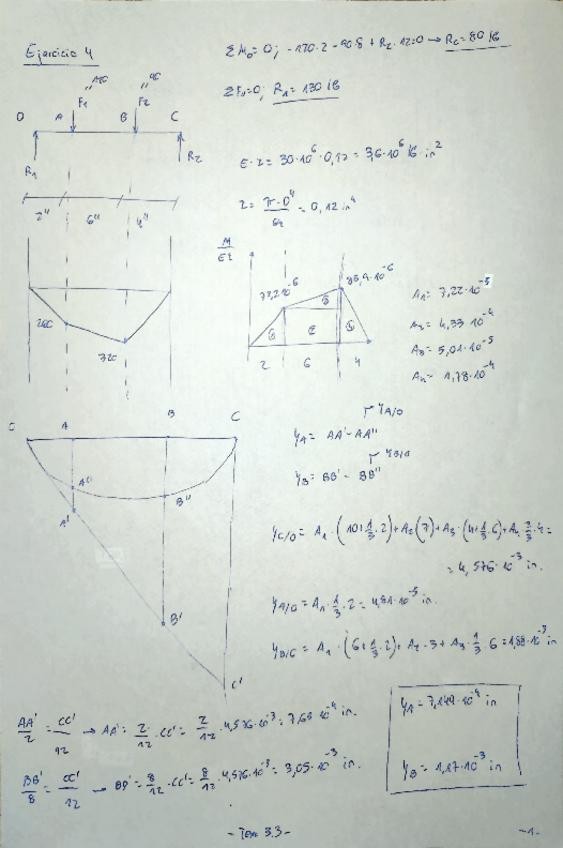 Ejercicio 4
ΣM₀=0; -170·2 -90·8 + R₂·12=0 → R₂=80 lb
ΣF=0; R₁=130 lb
F₁ F₂
O A B C
R₁ R₂
2" 6" 4"
E·I = 30·10⁶·0,12 = 3,6·10⁶ lb·in²
I = π·D⁴/64 = 0,12 in⁴
M/EI
72,2·10⁻⁶
2 6 4
260
720
A₁= 7,22·10⁻⁵
A₂= 4,33·10⁻⁴
A₃= 5,01·10⁻⁵
A₄= 1,78·10⁻⁴
O A B C
A''
A'
B''
B'
C'
y_A/O
y_A= AA' - AA''
y_B/O
y_B= BB' - BB''
y_C/O = A₁·(10+1/3·2)+A₂(7)+A₃·(4+1/3·6)+A₄·2/3·4=
=4,576·10⁻³ in.
y_A/O = A₁·1/3·2= 4,81·10⁻⁵ in.
= A₁·(6+1/3·2)+A₂·3+A₃·1/3·6=1,88·10⁻³ in
AA'/2 = CC'/12 → AA'= 2/12·CC'= 2/12·4,576·10⁻³= 7,63·10⁻⁴ in.
BB'/8 = CC'/12 → BB'= 8/12·CC'= 8/12·4,576·10⁻³= 3,05·10⁻³ in.
= 7,149·10⁻⁴ in
y_B= 1,17·10⁻³ in
- Tema 3.3 -
-1-